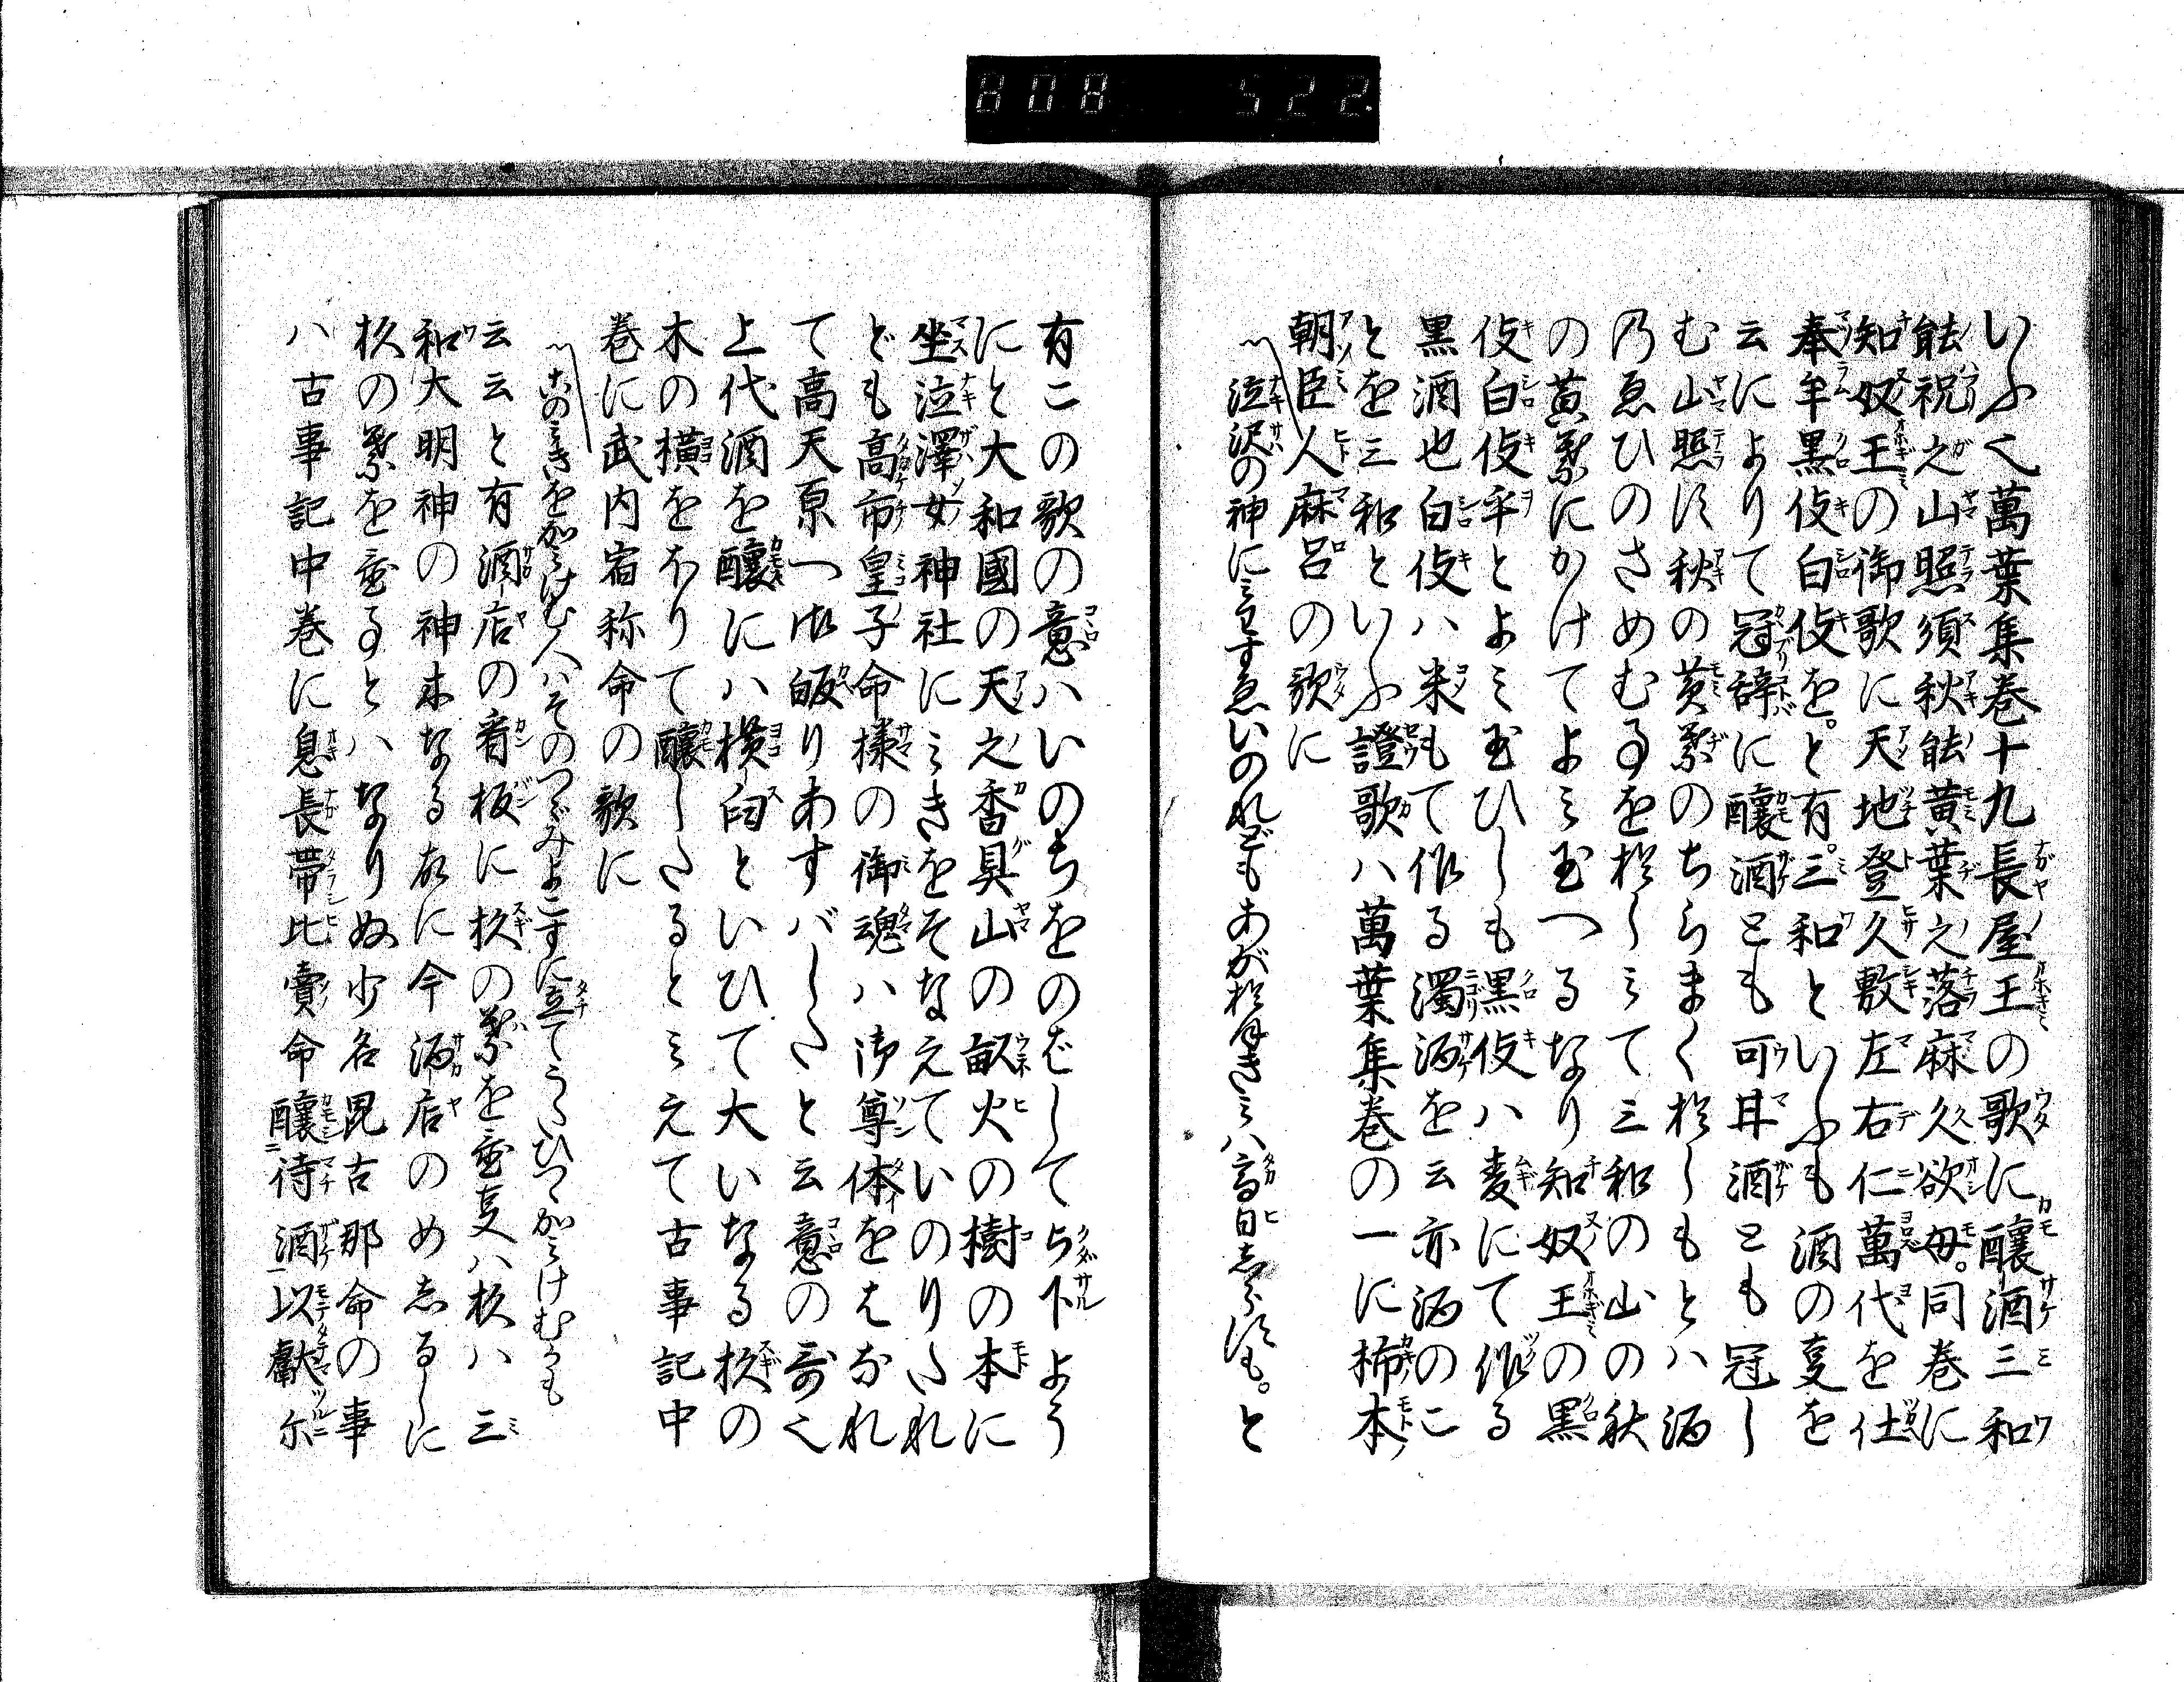 808 522
いふく萬葉集巻十九長屋王の歌に釀酒三和
能祝之山照須秋能黄葉之落麻久欲毋。同巻に
知奴王の御歌に天地登久敷左右仁萬代を仕
奉牟黒伎白伎を。と有。三和といふも酒の㕝を
云によりて冠辞に釀酒とも可甘酒とも冠し
む山照す秋の黄葉のちらまく惜しもとハ酒
乃ゑひのさめむるを惜しみて三和の山の秋
の黄葉にかけてよみ玉つるなり知奴王の黒
伎白伎乎とよミ玉ひしも黒伎ハ麦にて作る
黒酒也白伎ハ米もて作る濁酒を云亦酒のこ
とを三和といふ證歌ハ萬葉集巻の一に柿本
朝臣人麻呂の歌に
泣沢の神にみわすゑいのれどもあが於ほきみハ高日志らすも。と
有この歌の意ハいのちをのばして与下よう
にと大和國の天之香具山の畝火の樹の本に
坐泣澤女神社にみきをそなえていのりたれ
ども高市皇子命様の御魂ハ御尊体をはなれ
て高天原つ御皈りあすバしたと云意の哥く
上代酒を釀にハ横臼といひて大いなる杉の
木の横をほりて釀したるとみえて古事記中
巻に武内宿称命の歌に
このみきをかみけむ人ハそのつゞみよこすに立てうたひつゝかみけむかも
云云と有酒店の看板に杉の葉を出㕝ハ杉ハ三
和大明神の神木なる故に今酒店のめじるしに
杉の葉を出るとハなりぬ少名毘古那命の事
ハ古事記中巻に息長帯比賣命釀待酒以獻尓